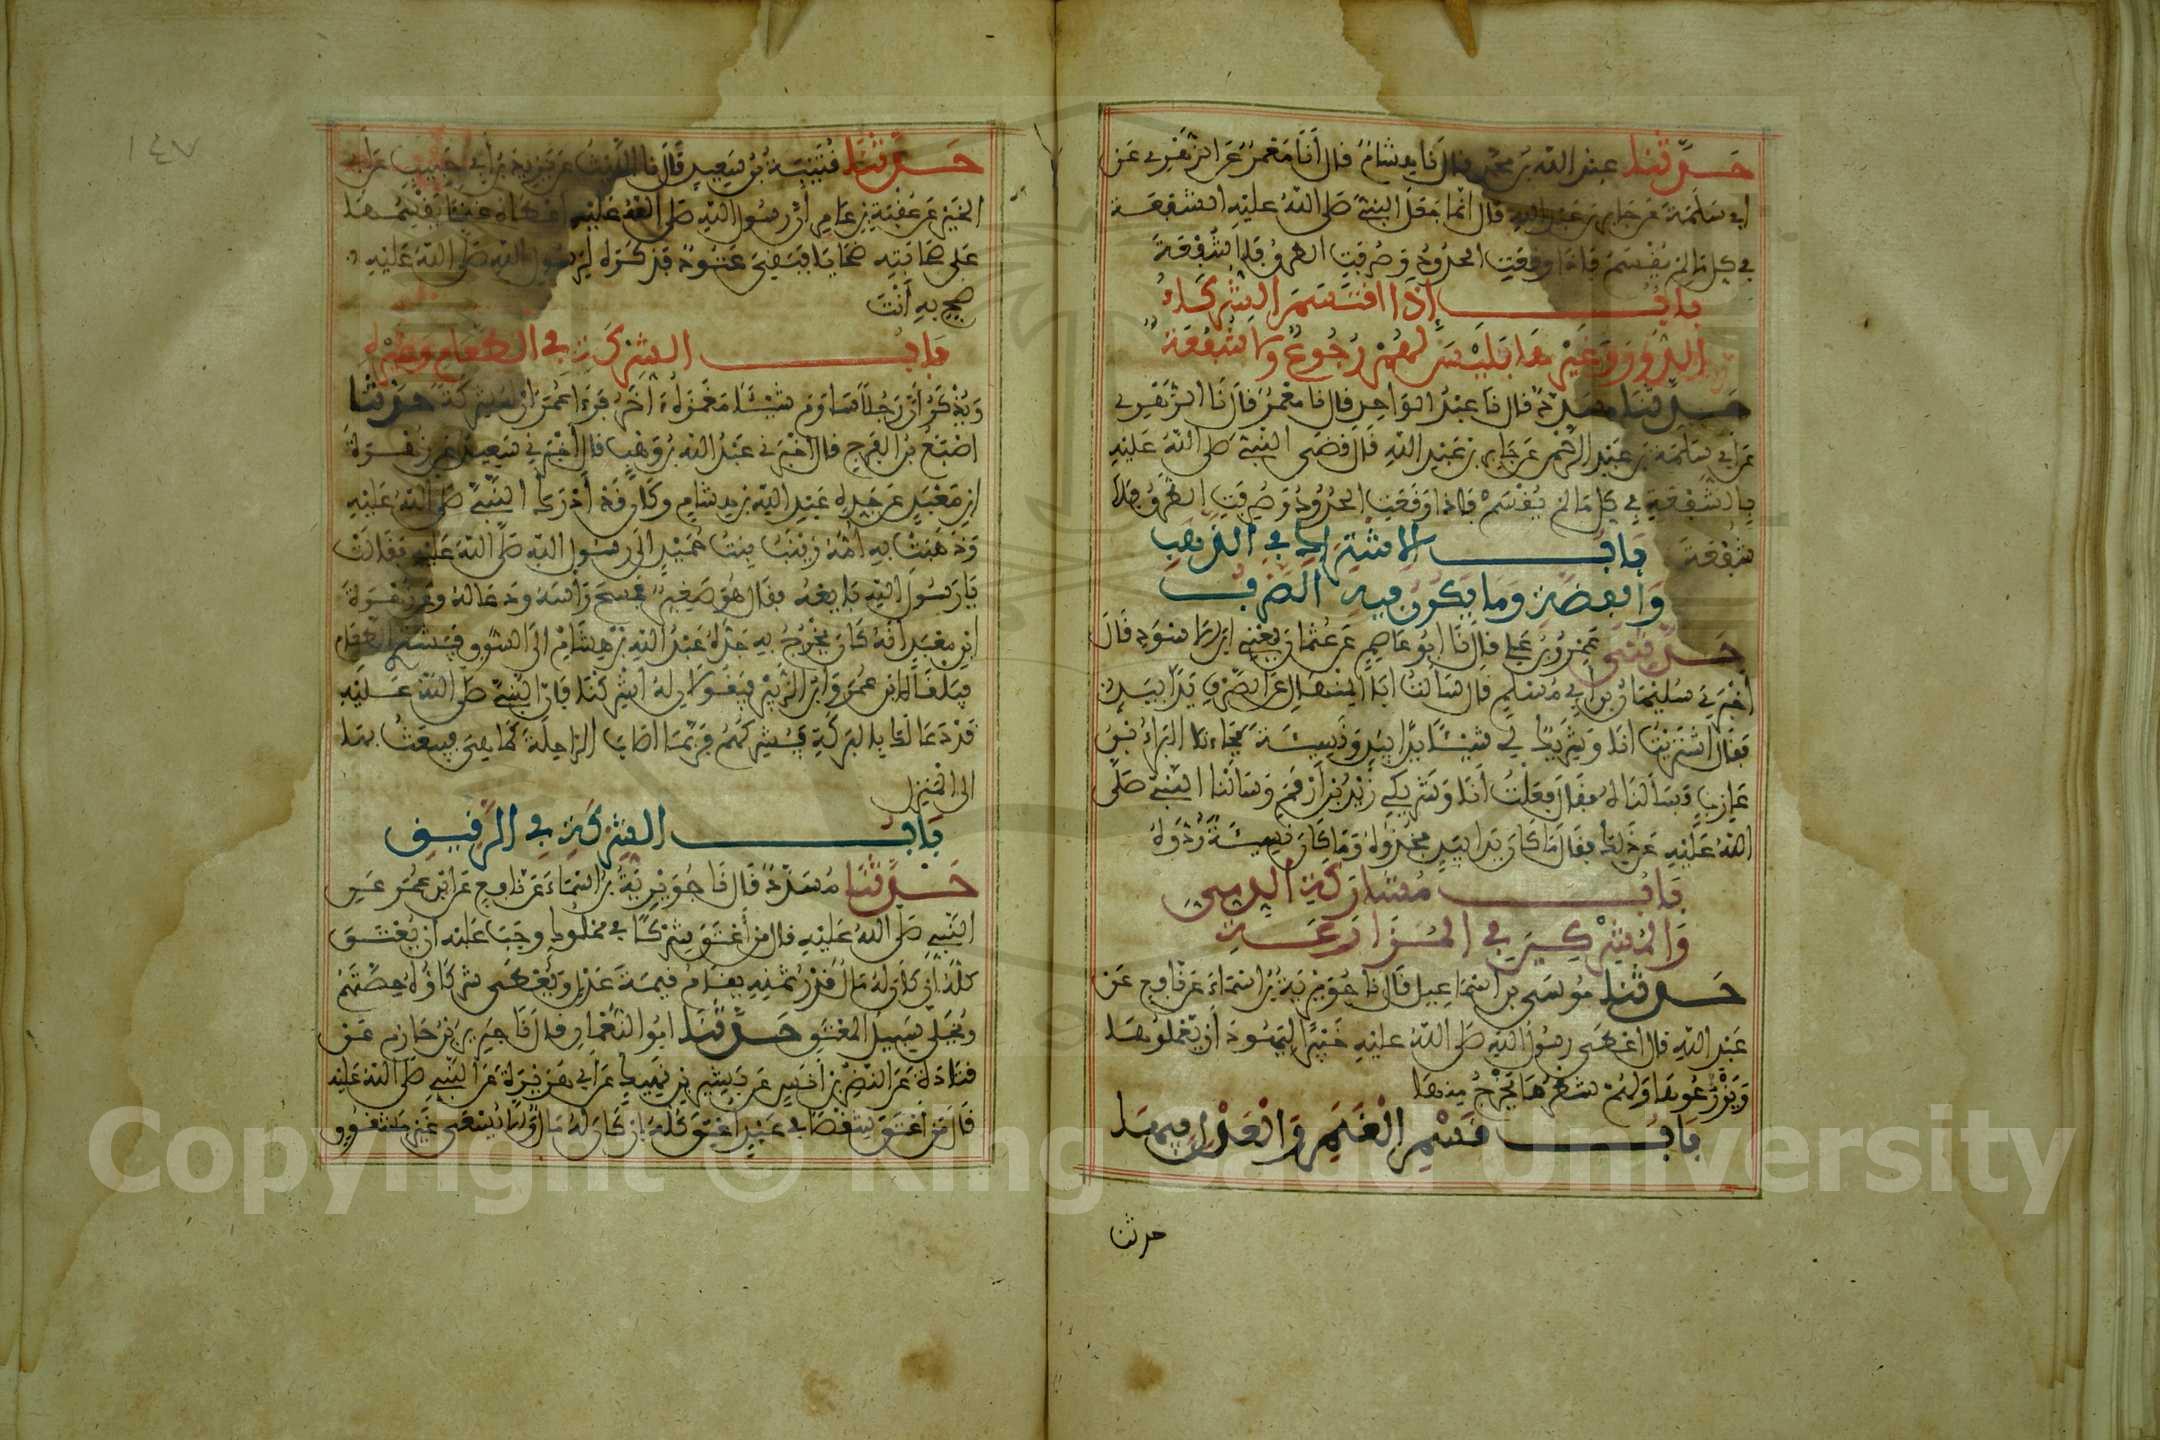 حدثنا عبد الله بن محمد قال نا هشام قال أنا معمر عن الزهري عن
ابي سلمة عن جابر بن عبد الله قال انما جعل النبي صلى الله عليه الشفعة
في كل ما لم يقسم فاذا وقعت الحدود وصرفت الطرق فلا شفعة
باب إذا اقتسم الشركاء
الدور وغيرها فليس لهم رجوع ولا شفعة
حدثنا مسدد قال نا عبد الواحد قال نا معمر قال نا الزهري
عن ابي سلمة بن عبد الرحمن عن جابر بن عبد الله قال قضى النبي صلى الله عليه
بالشفعة في كل ما لم يقسم فاذا وقعت الحدود وصرفت الطرق فلا
شفعة
باب الاشتراك في الذهب
والفضة وما يكون فيه الصرف
حدثني عمرو بن علي قال نا ابو عاصم عن عثمان يعني ابن الاسود قال
أخبرني سليمان بن أبي مسلم قال سألت ابا المنهال عن الصرف يدا بيد
فقال اشتريت انا وشريك لي شيئا يدا بيد ونسيئة فجاءنا البراء بن
عازب فسألناه فقال فعلت أنا وشريكي زيد بن أرقم وسألنا النبي صلى
الله عليه عن ذلك فقال ما كان يدا بيد فخذوه وما كان نسيئة ردوه
باب مشاركة الذمي
والمشركين في المزارعة
حدثنا موسى بن اسماعيل قال نا جويرية بن اسماء عن نافع عن
عبد الله قال اعطى رسول الله صلى الله عليه خيبر اليهود أن يعملوها
ويزرعوها ولهم شطر ما يخرج منها
باب قسم الغنم والعدل فيها
حدثنا
١٤٨
حدثنا قتيبة بن سعيد قال نا الليث عن يزيد بن أبي حبيب عن أبي
الخير عن عقبة بن عامر أن رسول الله صلى الله عليه اعطاه غنما يقسمها
على صحابته ضحايا فبقي عتود فذكره لرسول الله صلى الله عليه
ضح به أنت
باب الشركة في الطعام وغيره
ويذكر أن رجلا ساوم شيئا فغمزه اخر فرءا عمر ان له شركة حدثنا
اصبغ بن الفرج قال اخبرني عبد الله بن وهب قال أخبرني سعيد عن زهرة
ابن معبد عن جده عبد الله بن هشام وكان قد أدرك النبي صلى الله عليه
وذهبت به امه زينب بنت حميد الى رسول الله صلى الله عليه فقالت
يا رسول الله بايعه فقال هو صغير فمسح رأسه ودعا له وعن زهرة
ابن معبد انه كان يخرج به جده عبد الله بن هشام الى السوق فيشتري الطعام
فيلقاه ابن عمر وابن الزبير فيقولان له اشركنا فان النبي صلى الله عليه
قد دعا لك بالبركة فيشركهم فربما اصاب الراحلة كما هي فيبعث بها
الى المنزل
باب الشركة في الرقيق
حدثنا مسدد قال نا جويرية بن اسماء عن نافع عن ابن عمر عن
النبي صلى الله عليه قال من أعتق شركا في مملوك وجب عليه ان يعتق
كله ان كان له مال قدر ثمنه يقام قيمة عدل ويعطى شركاؤه حصتهم
ويخلى سبيل المعتق حدثنا ابو النعمان قال نا جرير بن حازم عن
قتادة عن النضر بن انس عن بشير بن نهيك عن أبي هريرة عن النبي صلى الله عليه
قال من أعتق شقصا في عبد اعتق كله ان كان له مال والا يستسعى غير مشقوق